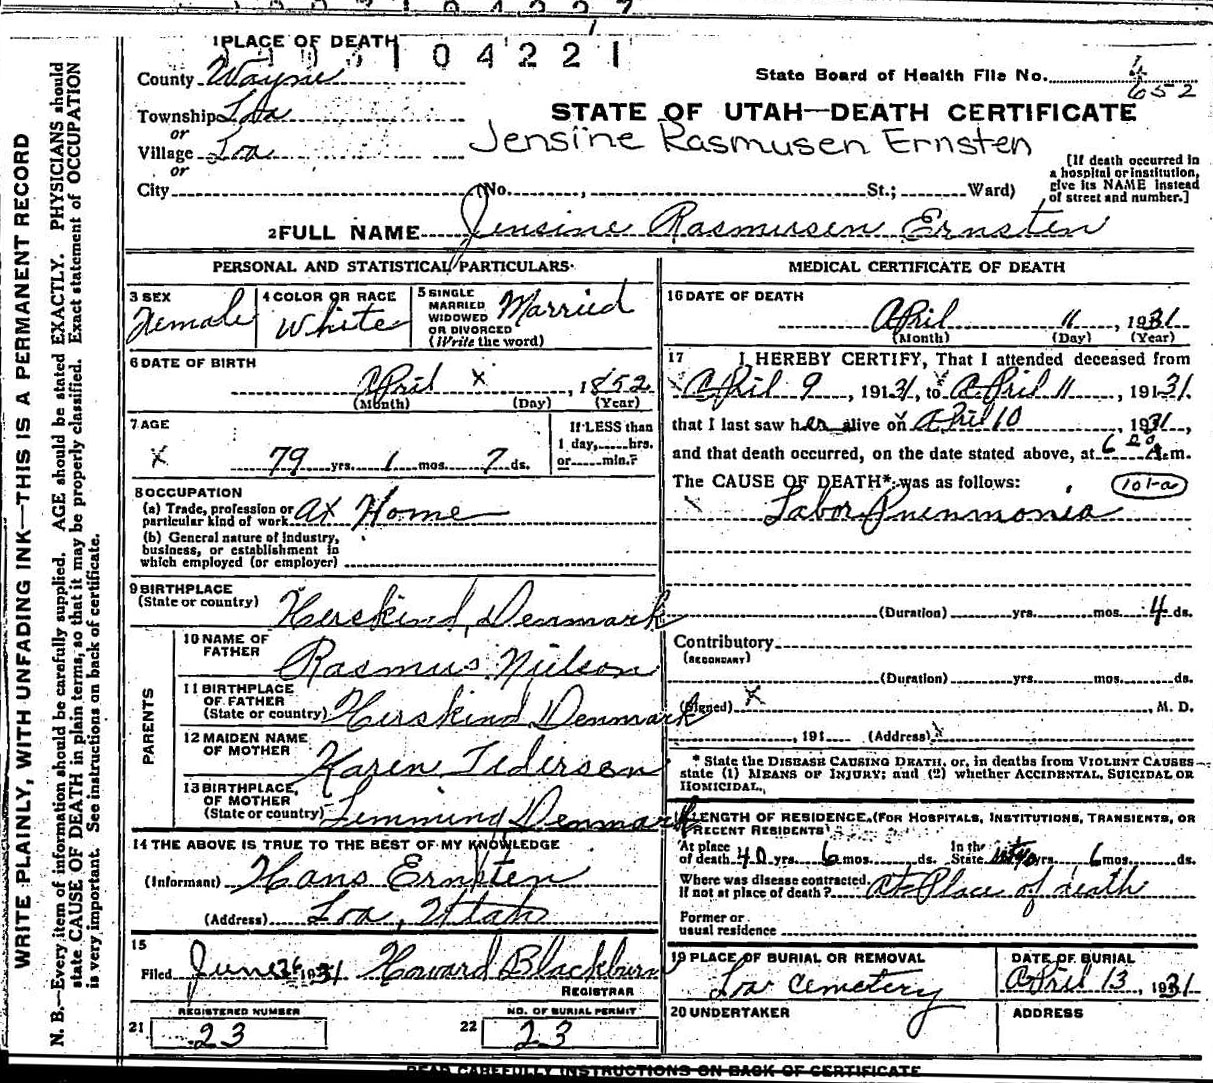 1 PLACE OF DEATH
04221
County Wayne
State Board of Health File No. 652
Township Loa
STATE OF UTAH—DEATH CERTIFICATE
or
Village Loa
Jensine Rasmusen Ernsten
or
[If death occurred in a hospital or institution, give its NAME instead of street and number.]
City (No. , St.; Ward)
2 FULL NAME Jensine Rasmusen Ernsten
PERSONAL AND STATISTICAL PARTICULARS
3 SEX
Female
4 COLOR OR RACE
White
5 SINGLE
MARRIED
WIDOWED
OR DIVORCED
(Write the word)
Married
6 DATE OF BIRTH
April x , 1852
(Month) (Day) (Year)
7 AGE
x 79 yrs. 1 mos. 7 ds.
If LESS than
1 day, hrs.
or min.?
8 OCCUPATION
(a) Trade, profession or
particular kind of work At Home
(b) General nature of industry,
business, or establishment in
which employed (or employer)
9 BIRTHPLACE
(State or country) Herskind, Denmark
PARENTS
10 NAME OF
FATHER Rasmus Nielson
11 BIRTHPLACE
OF FATHER
(State or country) Herskind Denmark
12 MAIDEN NAME
OF MOTHER Karen Pedersen
13 BIRTHPLACE
OF MOTHER
(State or country) Lemming Denmark
14 THE ABOVE IS TRUE TO THE BEST OF MY KNOWLEDGE
(Informant) Hans Ernsten
(Address) Loa, Utah
15
Filed June 26 1931 Howard Blackburn
REGISTRAR
REGISTERED NUMBER
21 23
NO. OF BURIAL PERMIT
22 23
MEDICAL CERTIFICATE OF DEATH
16 DATE OF DEATH
April 11 , 1931
(Month) (Day) (Year)
17 I HEREBY CERTIFY, That I attended deceased from
April 9 , 19131, to April 11 , 19131.
that I last saw her alive on April 10 1931,
and that death occurred, on the date stated above, at 6 A.m.
The CAUSE OF DEATH* was as follows: 101-a
Labor Pnenmonia
(Duration) yrs. mos. 4 ds.
Contributory
(SECONDARY)
(Duration) yrs. mos. ds.
(Signed) x , M. D.
, 191 (Address) x
* State the DISEASE CAUSING DEATH, or, in deaths from VIOLENT CAUSES
state (1) MEANS OF INJURY; and (2) whether ACCIDENTAL, SUICIDAL OR
HOMICIDAL.
LENGTH OF RESIDENCE, (FOR HOSPITALS, INSTITUTIONS, TRANSIENTS, OR
RECENT RESIDENTS)
At place
of death 40 yrs. 6 mos. ds. In the
State 40 yrs. 6 mos. ds.
Where was disease contracted
If not at place of death? At Place of death
Former or
usual residence
19 PLACE OF BURIAL OR REMOVAL
Loa Cemetery
DATE OF BURIAL
April 13 , 1931
20 UNDERTAKER
ADDRESS
READ CAREFULLY INSTRUCTIONS ON BACK OF CERTIFICATE
WRITE PLAINLY, WITH UNFADING INK—THIS IS A PERMANENT RECORD
N. B.—Every item of information should be carefully supplied. AGE should be stated EXACTLY. PHYSICIANS should
state CAUSE OF DEATH in plain terms, so that it may be properly classified. Exact statement of OCCUPATION
is very important. See instructions on back of certificate.